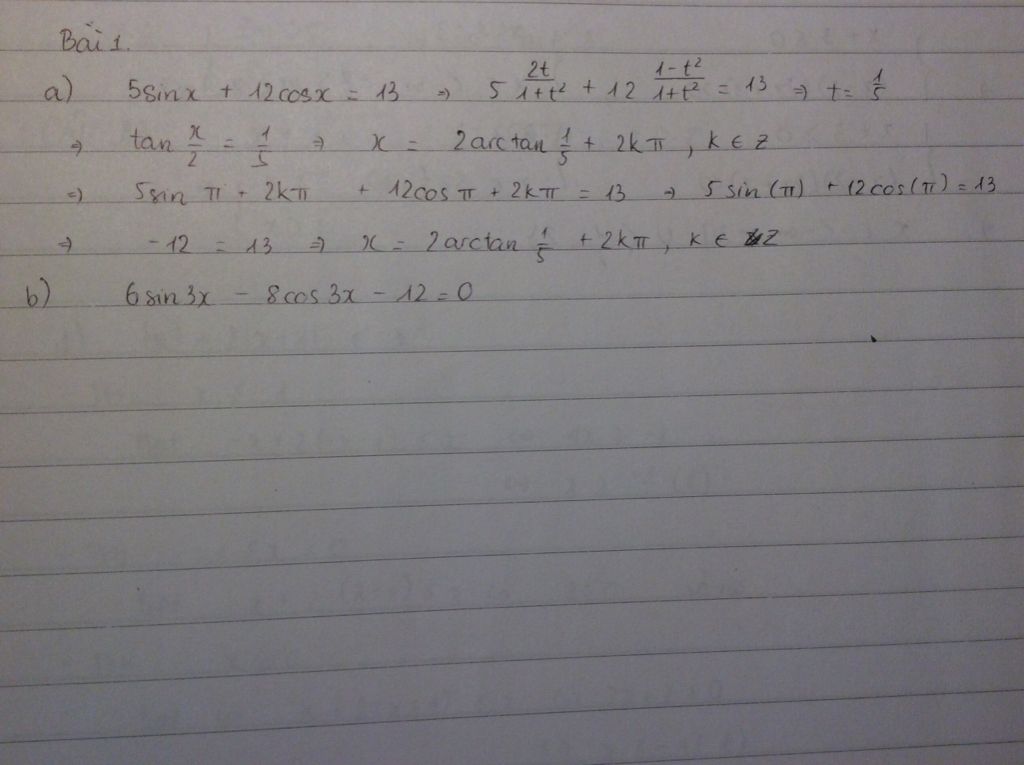 Bài 1.
a) 5sinx + 12cosx = 13 ⇒ 5 2t/(1+t²) + 12 (1-t²)/(1+t²) = 13 ⇒ t = 1/5
⇒ tan x/2 = 1/5 ⇒ x = 2arctan 1/5 + 2kπ, k ∈ Z
⇒ 5sin π + 2kπ + 12cos π + 2kπ = 13 ⇒ 5sin(π) + 12cos(π) = 13
⇒ -12 = 13 ⇒ x = 2arctan 1/5 + 2kπ, k ∈ Z
b) 6sin3x - 8cos3x - 12 = 0